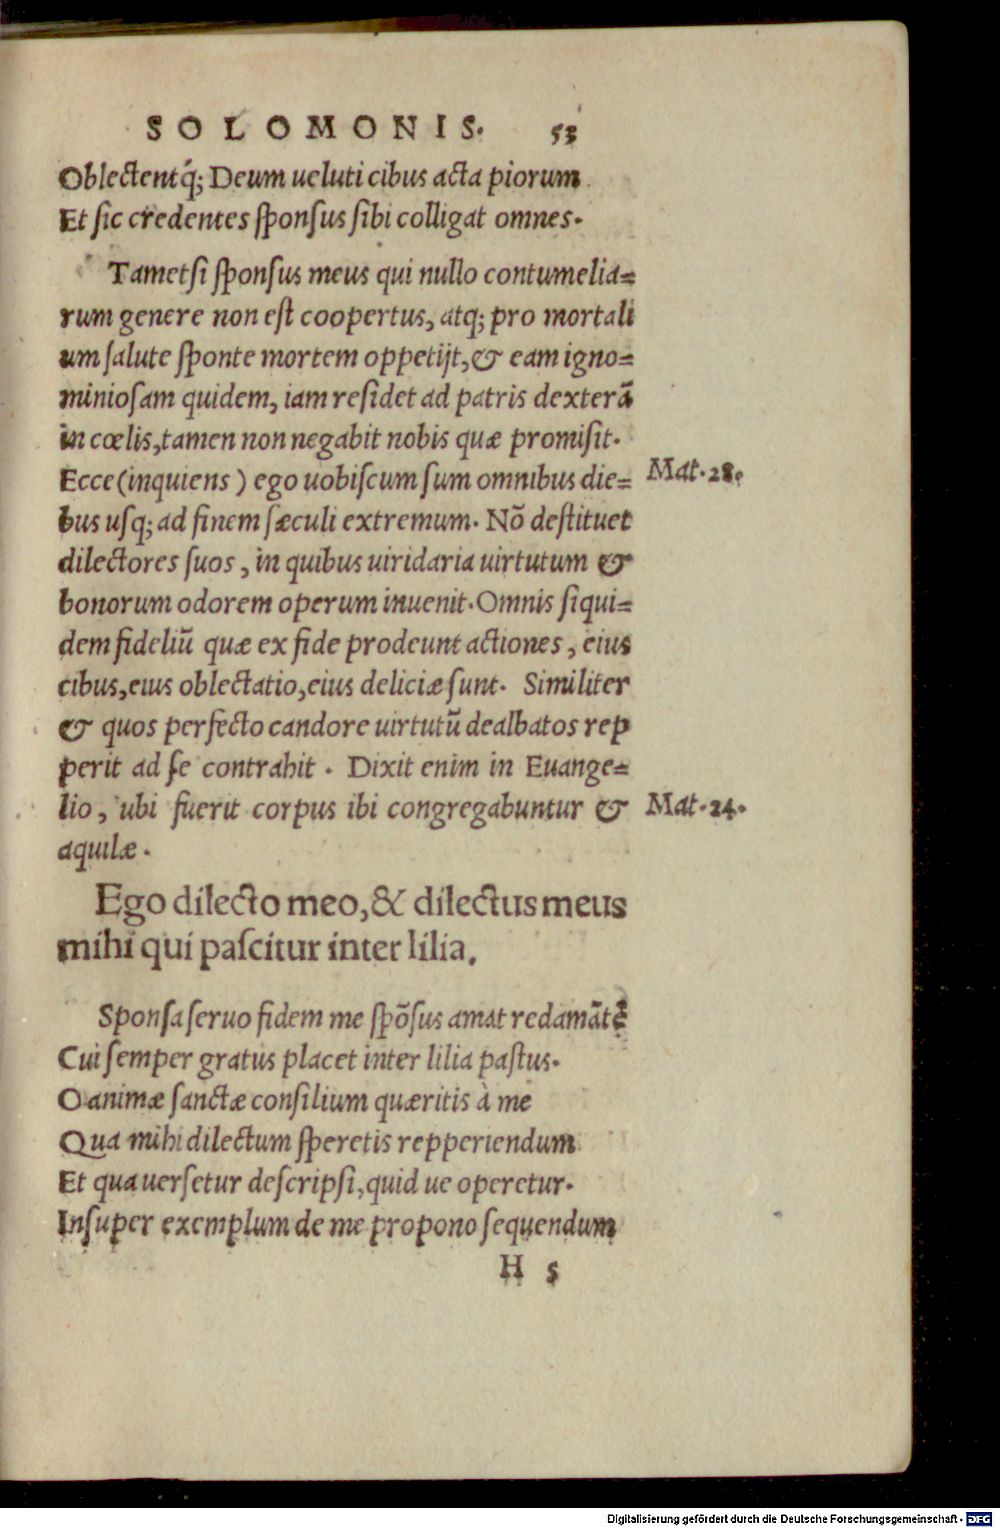 SOLOMONIS. 53
Oblectentq́; Deum ueluti cibus acta piorum
Et ſic credentes ſponſus ſibi colligat omnes.
Tametſi ſponſus meus qui nullo contumelia=
rum genere non eſt coopertus, atq; pro mortali
um ſalute ſponte mortem oppetijt, & eam igno=
minioſam quidem, iam reſidet ad patris dexterā
in cœlis, tamen non negabit nobis quæ promiſit.
Ecce (inquiens) ego uobiſcum ſum omnibus die= Mat. 28.
bus uſq; ad finem ſæculi extremum. Nō deſtituet
dilectores ſuos, in quibus uiridaria uirtutum &
bonorum odorem operum inuenit. Omnis ſiqui=
dem fideliū quæ ex fide prodeunt actiones, eius
cibus, eius oblectatio, eius deliciæ ſunt. Similiter
& quos perfecto candore uirtutū dealbatos rep
perit ad ſe contrahit. Dixit enim in Euange=
lio, ubi fuerit corpus ibi congregabuntur & Mat. 24.
aquilæ.
Ego dilecto meo, & dilectus meus
mihi qui paſcitur inter lilia.
Sponſa ſeruo fidem me ſpōſus amat redamātē
Cui ſemper gratus placet inter lilia paſtus.
O animæ ſanctæ conſilium quæritis à me
Qua mihi dilectum ſperetis repperiendum
Et qua uerſetur deſcripſi, quid ue operetur.
Inſuper exemplum de me propono ſequendum
H 5
Digitalisierung gefördert durch die Deutsche Forschungsgemeinschaft - DFG